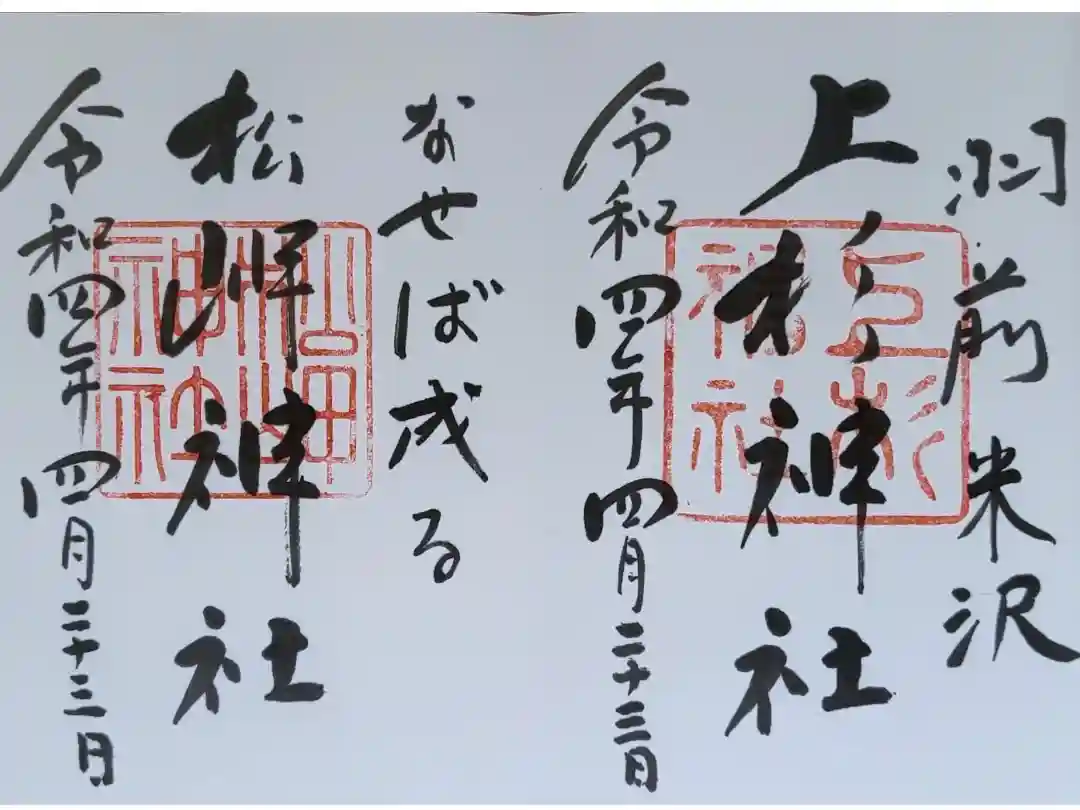 羽前米沢
上杉神社
上杉神社
令和四年四月二十三日
なせば成る
松岬神社
松岬神社
令和四年四月二十三日